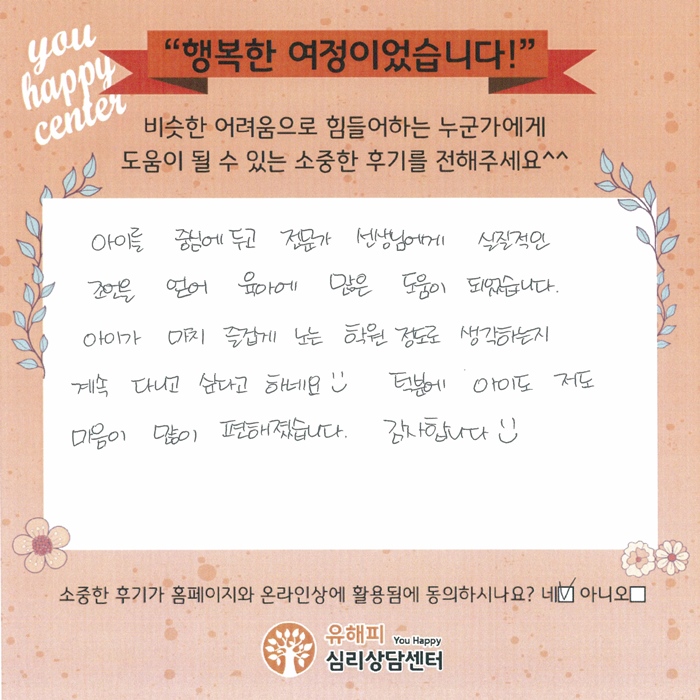 you
happy
center
“행복한 여정이었습니다!”
비슷한 어려움으로 힘들어하는 누군가에게
도움이 될 수 있는 소중한 후기를 전해주세요^^
아이를 중심에 두고 전문가 선생님에게 실질적인
조언을 얻어 육아에 많은 도움이 되었습니다.
아이가 마치 즐겁게 노는 학원 정도로 생각하는지
계속 다니고 싶다고 하네요 :) 덕분에 아이도 저도
마음이 많이 편해졌습니다. 감사합니다 :)
소중한 후기가 홈페이지와 온라인상에 활용됨에 동의하시나요? 네☑ 아니오☐
유해피 You Happy
심리상담센터